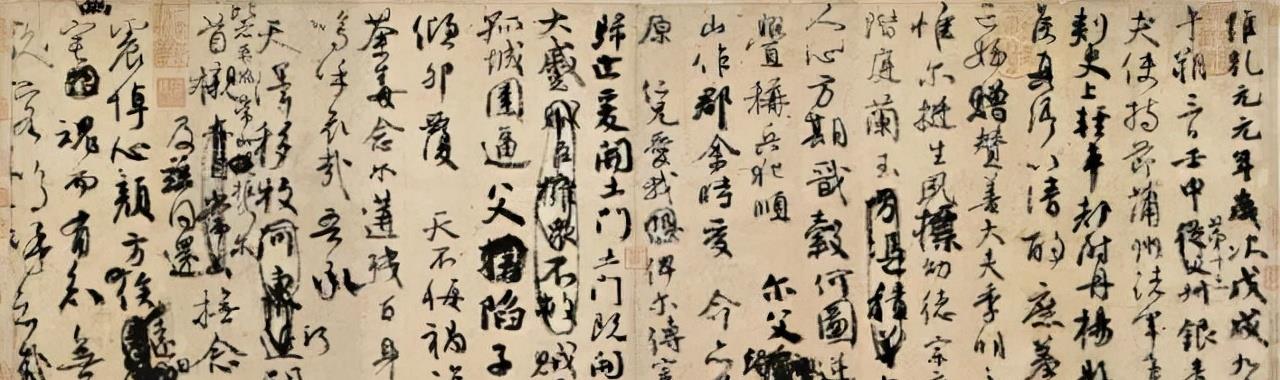 維乾元元年歲次戊戌九
午朔三日壬申第十三從父叔銀青
夫使持節蒲州諸軍事
刺史上輕車都尉丹楊縣
侯真卿以清酌庶羞
亡姪贈贊善大夫季明之
惟爾挺生夙標幼德宗廟
階庭蘭玉方憑積善
人心方期戩穀何圖逆
釁稱兵犯順爾父
山作郡余時受命亦
原仁兄愛我恐俾爾傳言
歸止爰開土門土門既開
大蹙賊臣擁眾不救賊
孤城圍逼父陷子
傾卵覆天不悔禍誰
荼毒念爾遘殘百身
嗚乎哀哉吾承
天澤移牧河東近河
比者再陷常山攜爾
首櫬亦自常山撫念
及茲同還
震悼心顏方俟遠日
宅魂而有知無
久客嗚呼哀哉